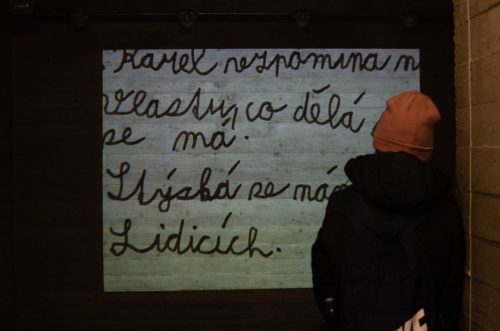 Karel vzpomíná n
Vlastu, co dělá
se má.
Stýská se nám
Lidicích.